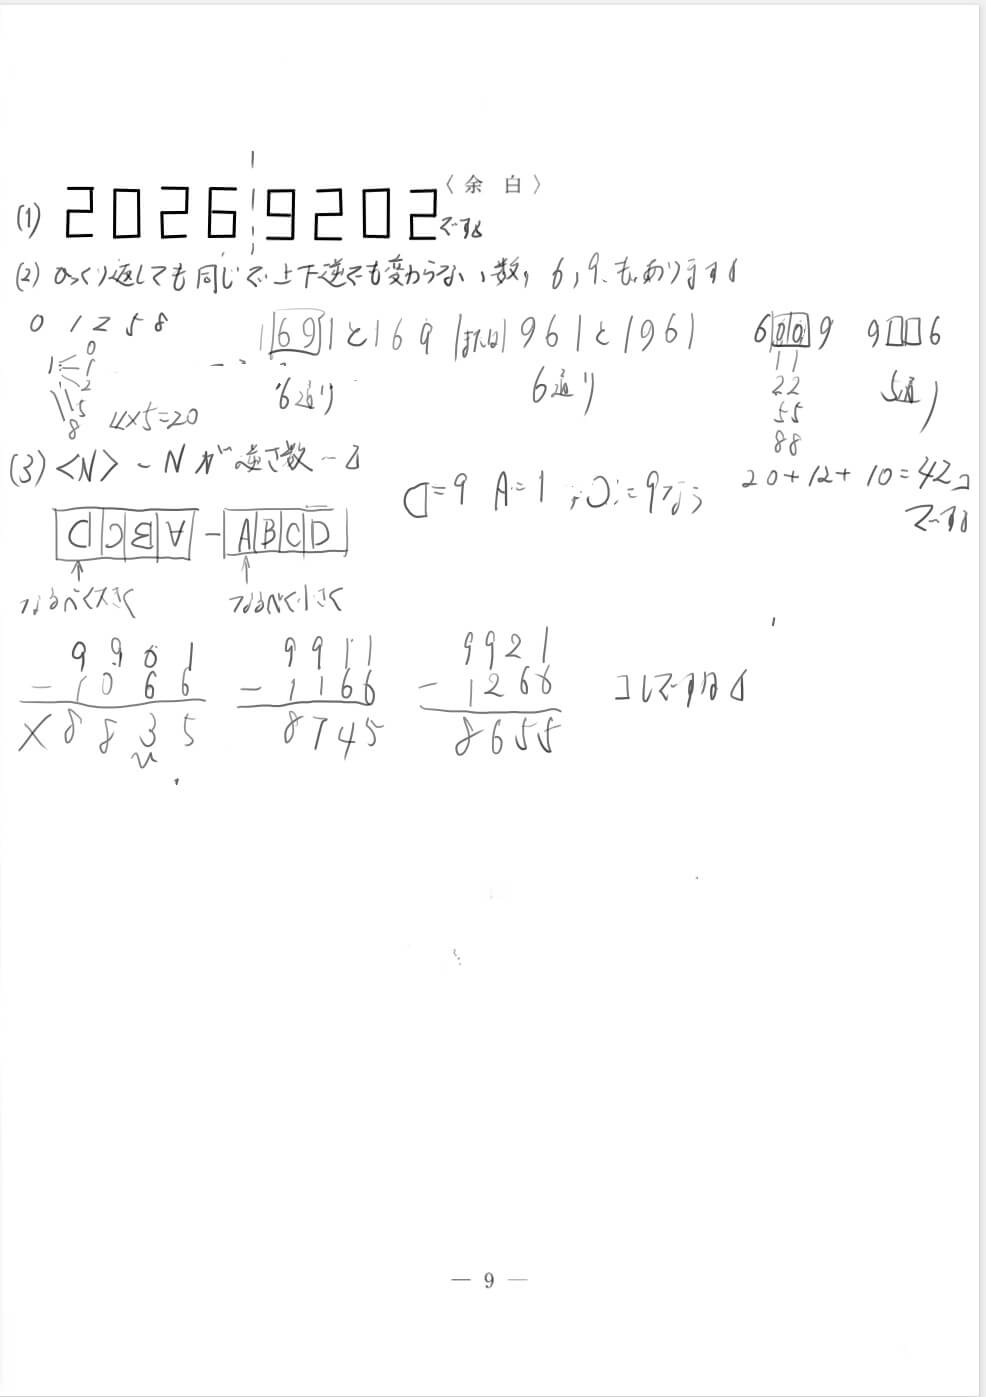 〈余 白〉
(1) 2026 9202 です
(2) ひっくり返しても同じで上下逆でも変わらない数, 6,9もあります
0 1 2 5 8
1 0 1 2 5 8
4×5=20
1691と1691または1961と1961
6通り
6通り
6 00 9 9□□6
11
22
55
88
5通り
20+12+10=42コ
です
(3) <N> - N が逆さ数
D C B A - A B C D
D=9 A=1 C=9なら
なるべく大きく
なるべく小さく
9901 - 1066 8835
9911 - 1166 8745
9921 - 1266 8655
コレですね
— 9 —